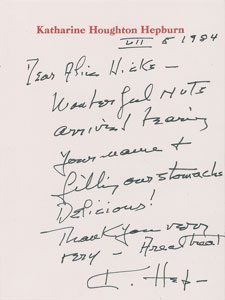 Katharine Houghton Hepburn
VII 5 1984
Dear Alice Hicks —
Wonderful nuts
arrived bearing
your name &
filling our stomachs
Delicious!
Thank you very
very — A real treat
K. Hep-